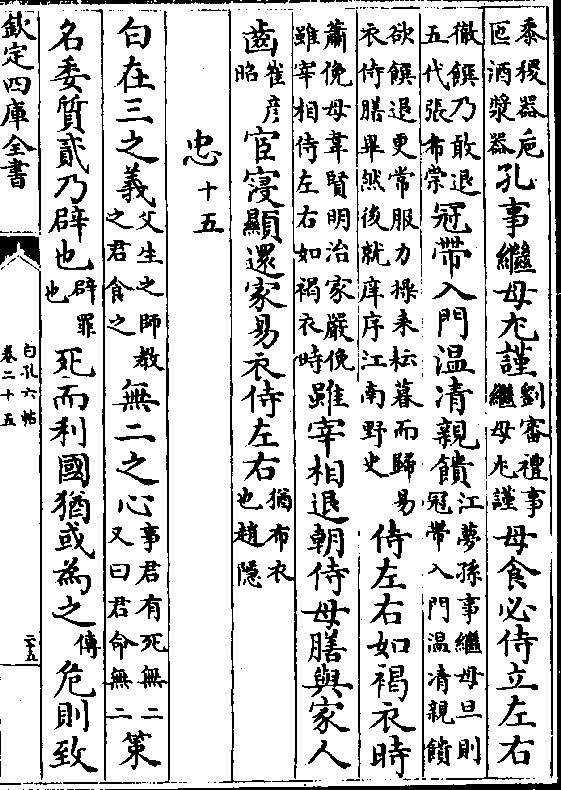 黍稷器巵匜酒漿器孔事繼母尤謹劉審禮事繼母尤謹母食必侍立左右
徹饌乃敢退五代張布棠冠帶入門温凊親饋江夢孫事繼母旦則冠帶入門温凊親饋
欲饌退更常服力操耒耘暮而歸易衣侍膳畢然後就庠序江南野史侍左右如褐衣時
蕭俛母韋賢明治家嚴俛雖宰相侍左右如褐衣時雖宰相退朝侍母膳與家人
齒崔彦昭宦寖顯還家易衣侍左右猶布衣也趙隱
忠十五
白在三之義父生之師教之君食之無二之心事君有死無二又曰君命無二策
名委質貳乃辟也辟罪也死而利國猶或為之傳危則致
欽定四庫全書
白孔六帖
卷二十五
二五